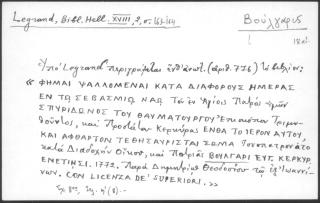 Legrand, Bibl. Hell. XVIII, 2, σ. 163-164
Βούλγαρις
Ὑπὸ Legrand περιγράφεται ἐνθ' ἀνωτ. (ἀριθ. 776) τὸ βιβλίον:
« ΦΗΜΑΙ ΨΑΛΛΟΜΕΝΑΙ ΚΑΤΑ ΔΙΑΦΟΡΟΥΣ ΗΜΕΡΑΣ
ΕΝ ΤΩ ΣΕΒΑΣΜΙΩ ΝΑΩ Τοῦ ἐν Ἁγίοις Πατρὸς ἡμῶν
ΣΠΥΡΙΔΩΝΟΣ ΤΟΥ ΘΑΥΜΑΤΟΥΡΓΟΥ Ἐπισκόπου Τριμυ-
θοῦντος, καὶ Προστάτου Κερκύρας ΕΝΘΑ ΤΟ ΙΕΡΟΝ ΑΥΤΟΥ,
ΚΑΙ ΑΦΘΑΡΤΟΝ ΤΕΘΗΣΑΥΡΙΣΤΑΙ ΣΩΜΑ
κατὰ Διαδοχὴν Οἴκου, καὶ Πατρίας ΒΟΥΛΓΑΡΙ ΕΥΓ. ΚΕΡΚΥΡ.
ΕΝΕΤΙΗΣΙ. 1772. Παρὰ Δημητρίῳ Θεοδοσίου τῷ ἐξ Ἰωαννί-
νων. CON LICENZA DE' SUPERIORI. »